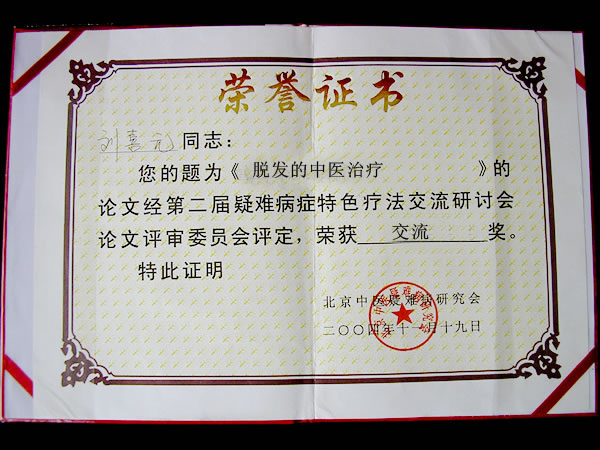 荣誉证书
刘喜元同志：
您的题为《 脱发的中医治疗 》的
论文经第二届疑难病症特色疗法交流研讨会
论文评审委员会评定，荣获 交流 奖。
特此证明
北京中医疑难病研究会
二〇〇四年十一月十九日